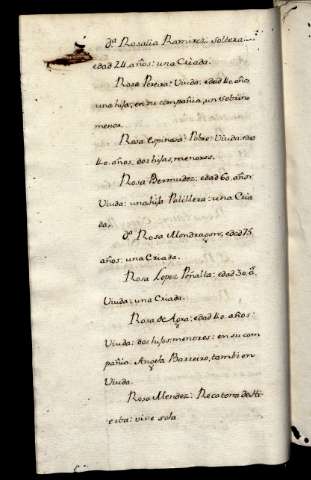 dª Rosalia Ramirez: soltera:
edad 24. años: una Criada.
Rosa Pereira: Viuda: edad 40. años
una hija, en su compañia, un sobrino
menor.
Rosa Espinosa: Pobre: Viuda:
40. años, dos hijas, menores.
Rosa Bermudez: edad 60. años:
Viuda: una hija Palillera: una Cria
da.
dª Rosa Mondragon, edad 75
años: una Criada.
Rosa Lopez Peñalta: edad 30. a.
Viuda: una Criada.
Rosa de Agra: edad 40. años:
Viuda: dos hijos, menores: en su com
pañia Angela Barreiro, tambien
Viuda.
Rosa Mendez: Recatona
vive sola.